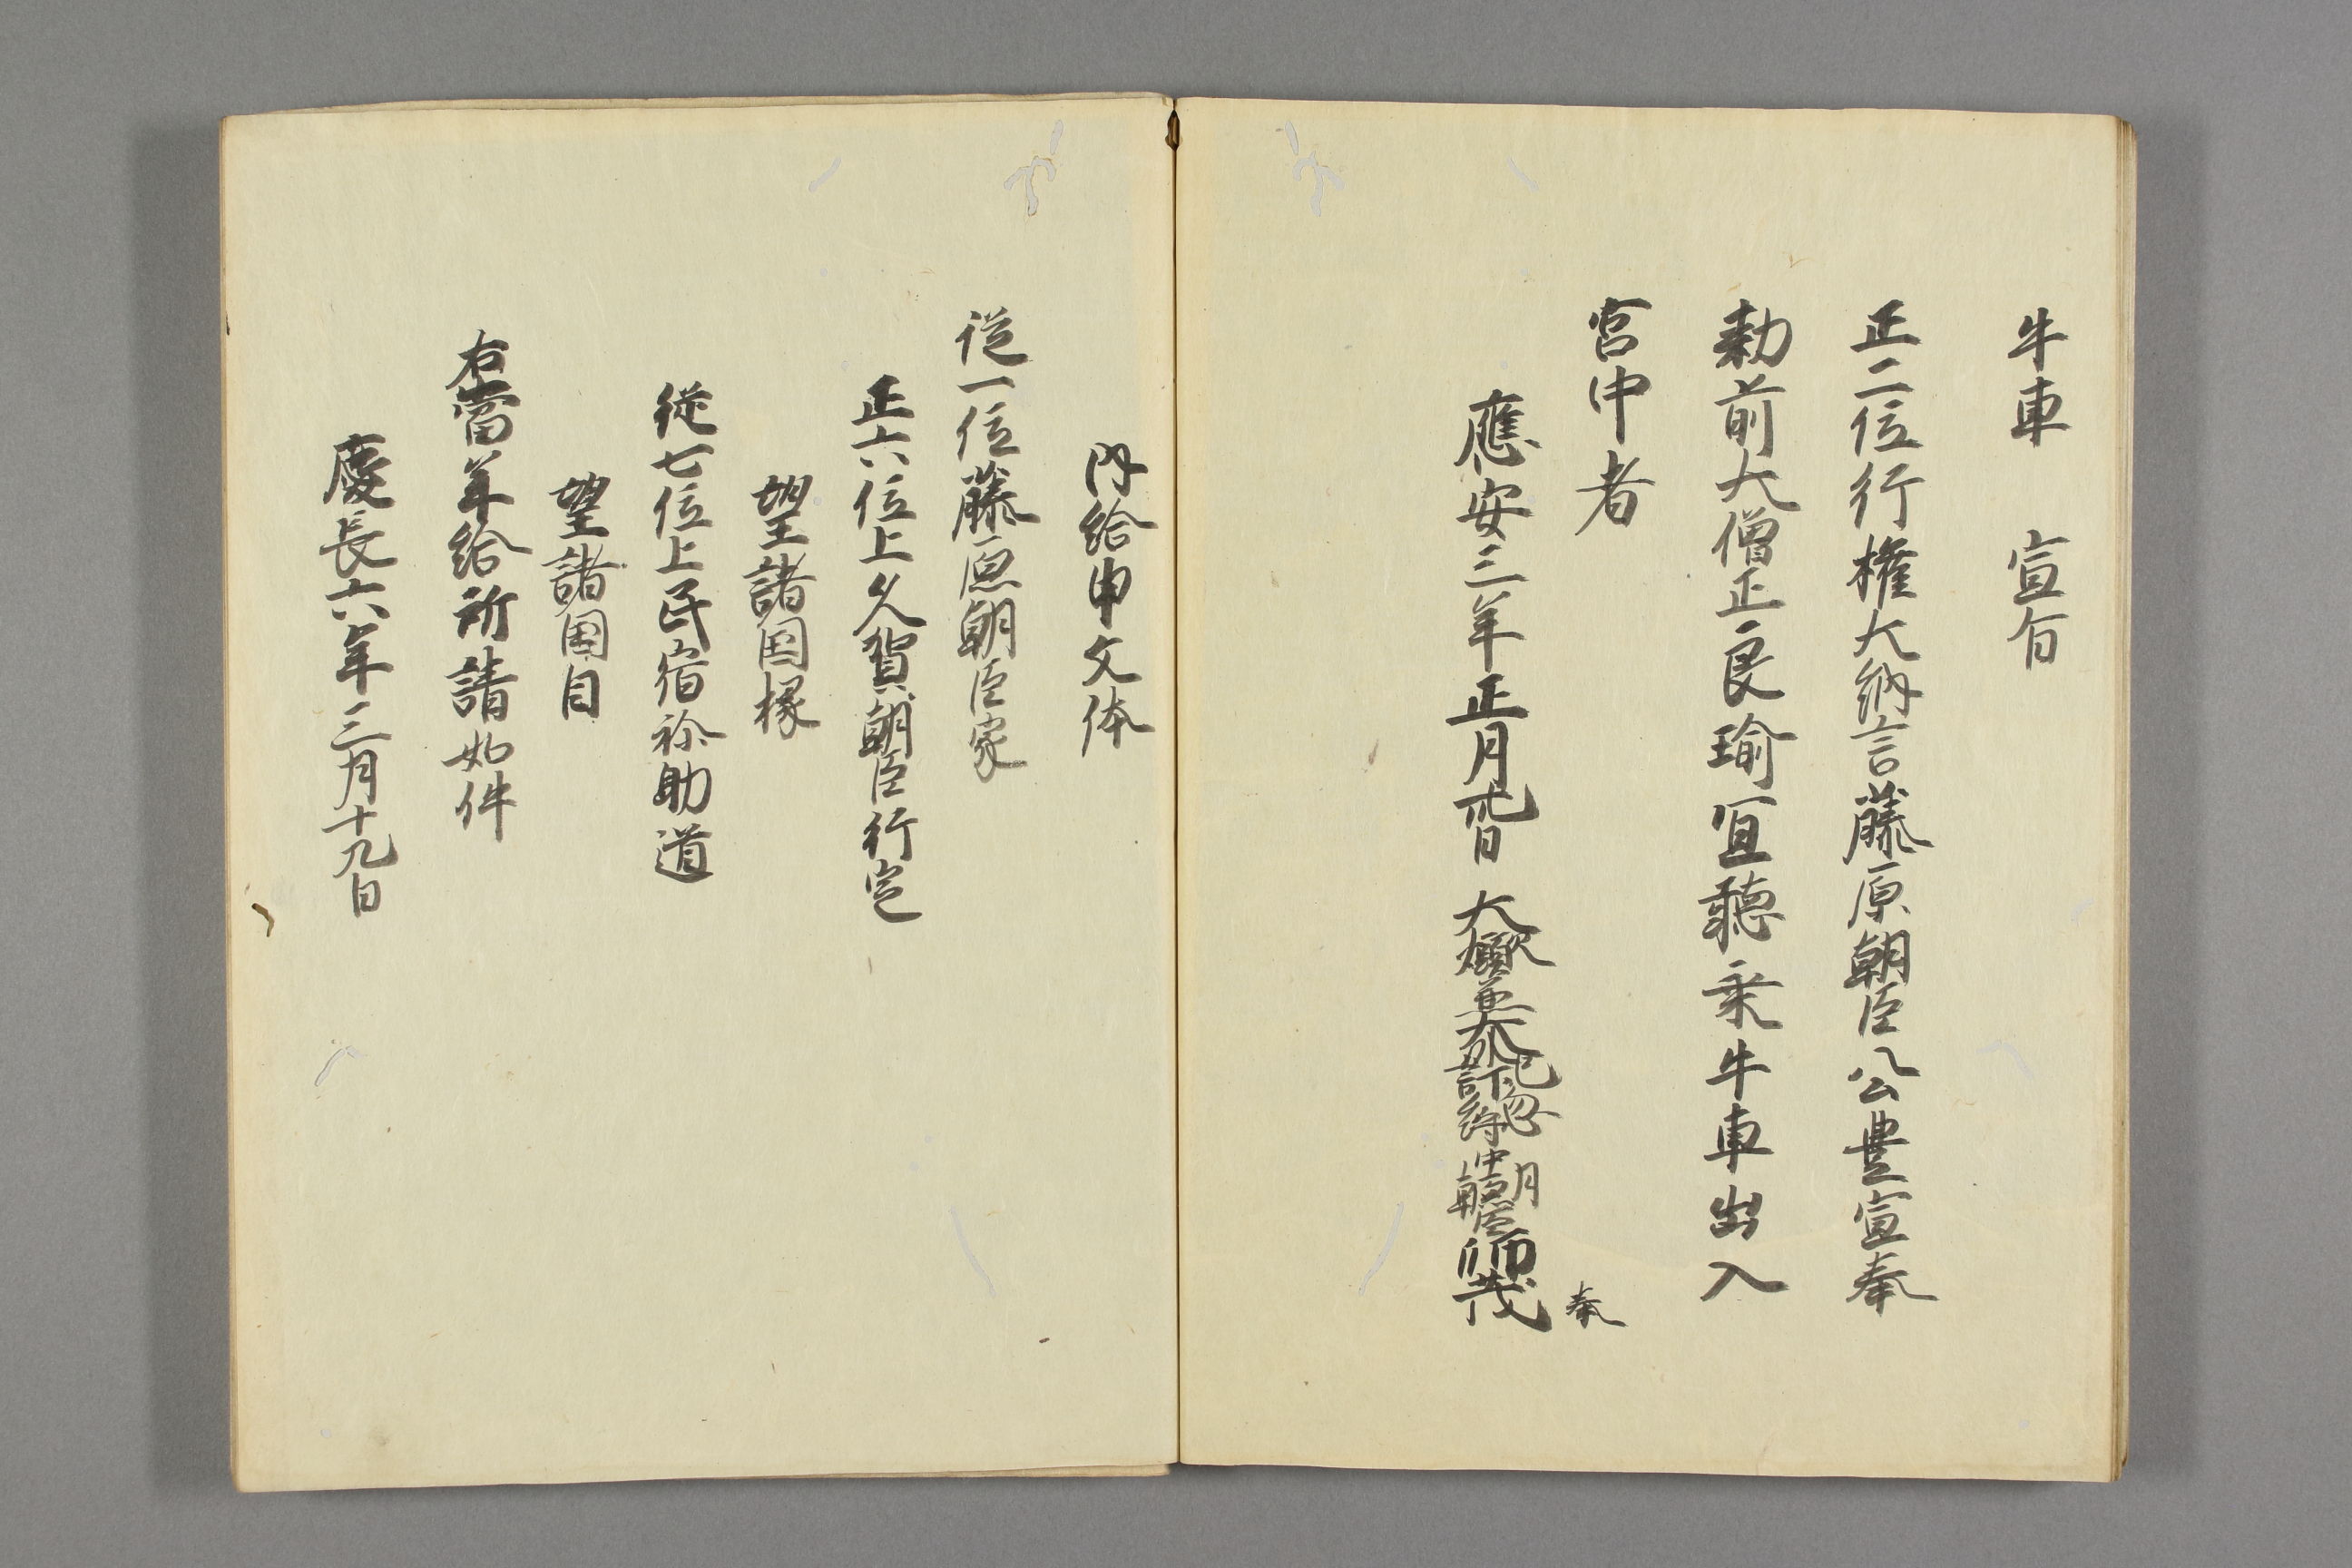 牛車　宣旨
正二位行権大納言藤原朝臣公豊宣奉
勅前大僧正良瑜宜聽乗牛車出入
宮中者
應安三年正月廿八日　大外記
中原朝臣師茂
奉
内給申文体
従一位藤原朝臣家
正六位上久賀朝臣行定
望諸国掾
従七位上民宿祢助道
望諸国目
右當年給所請如件
慶長六年三月十九日